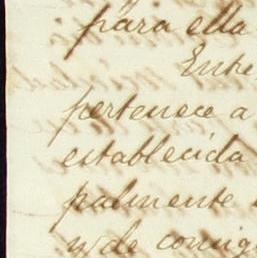 para ella
Entre
pertenece a
establecida
palmente